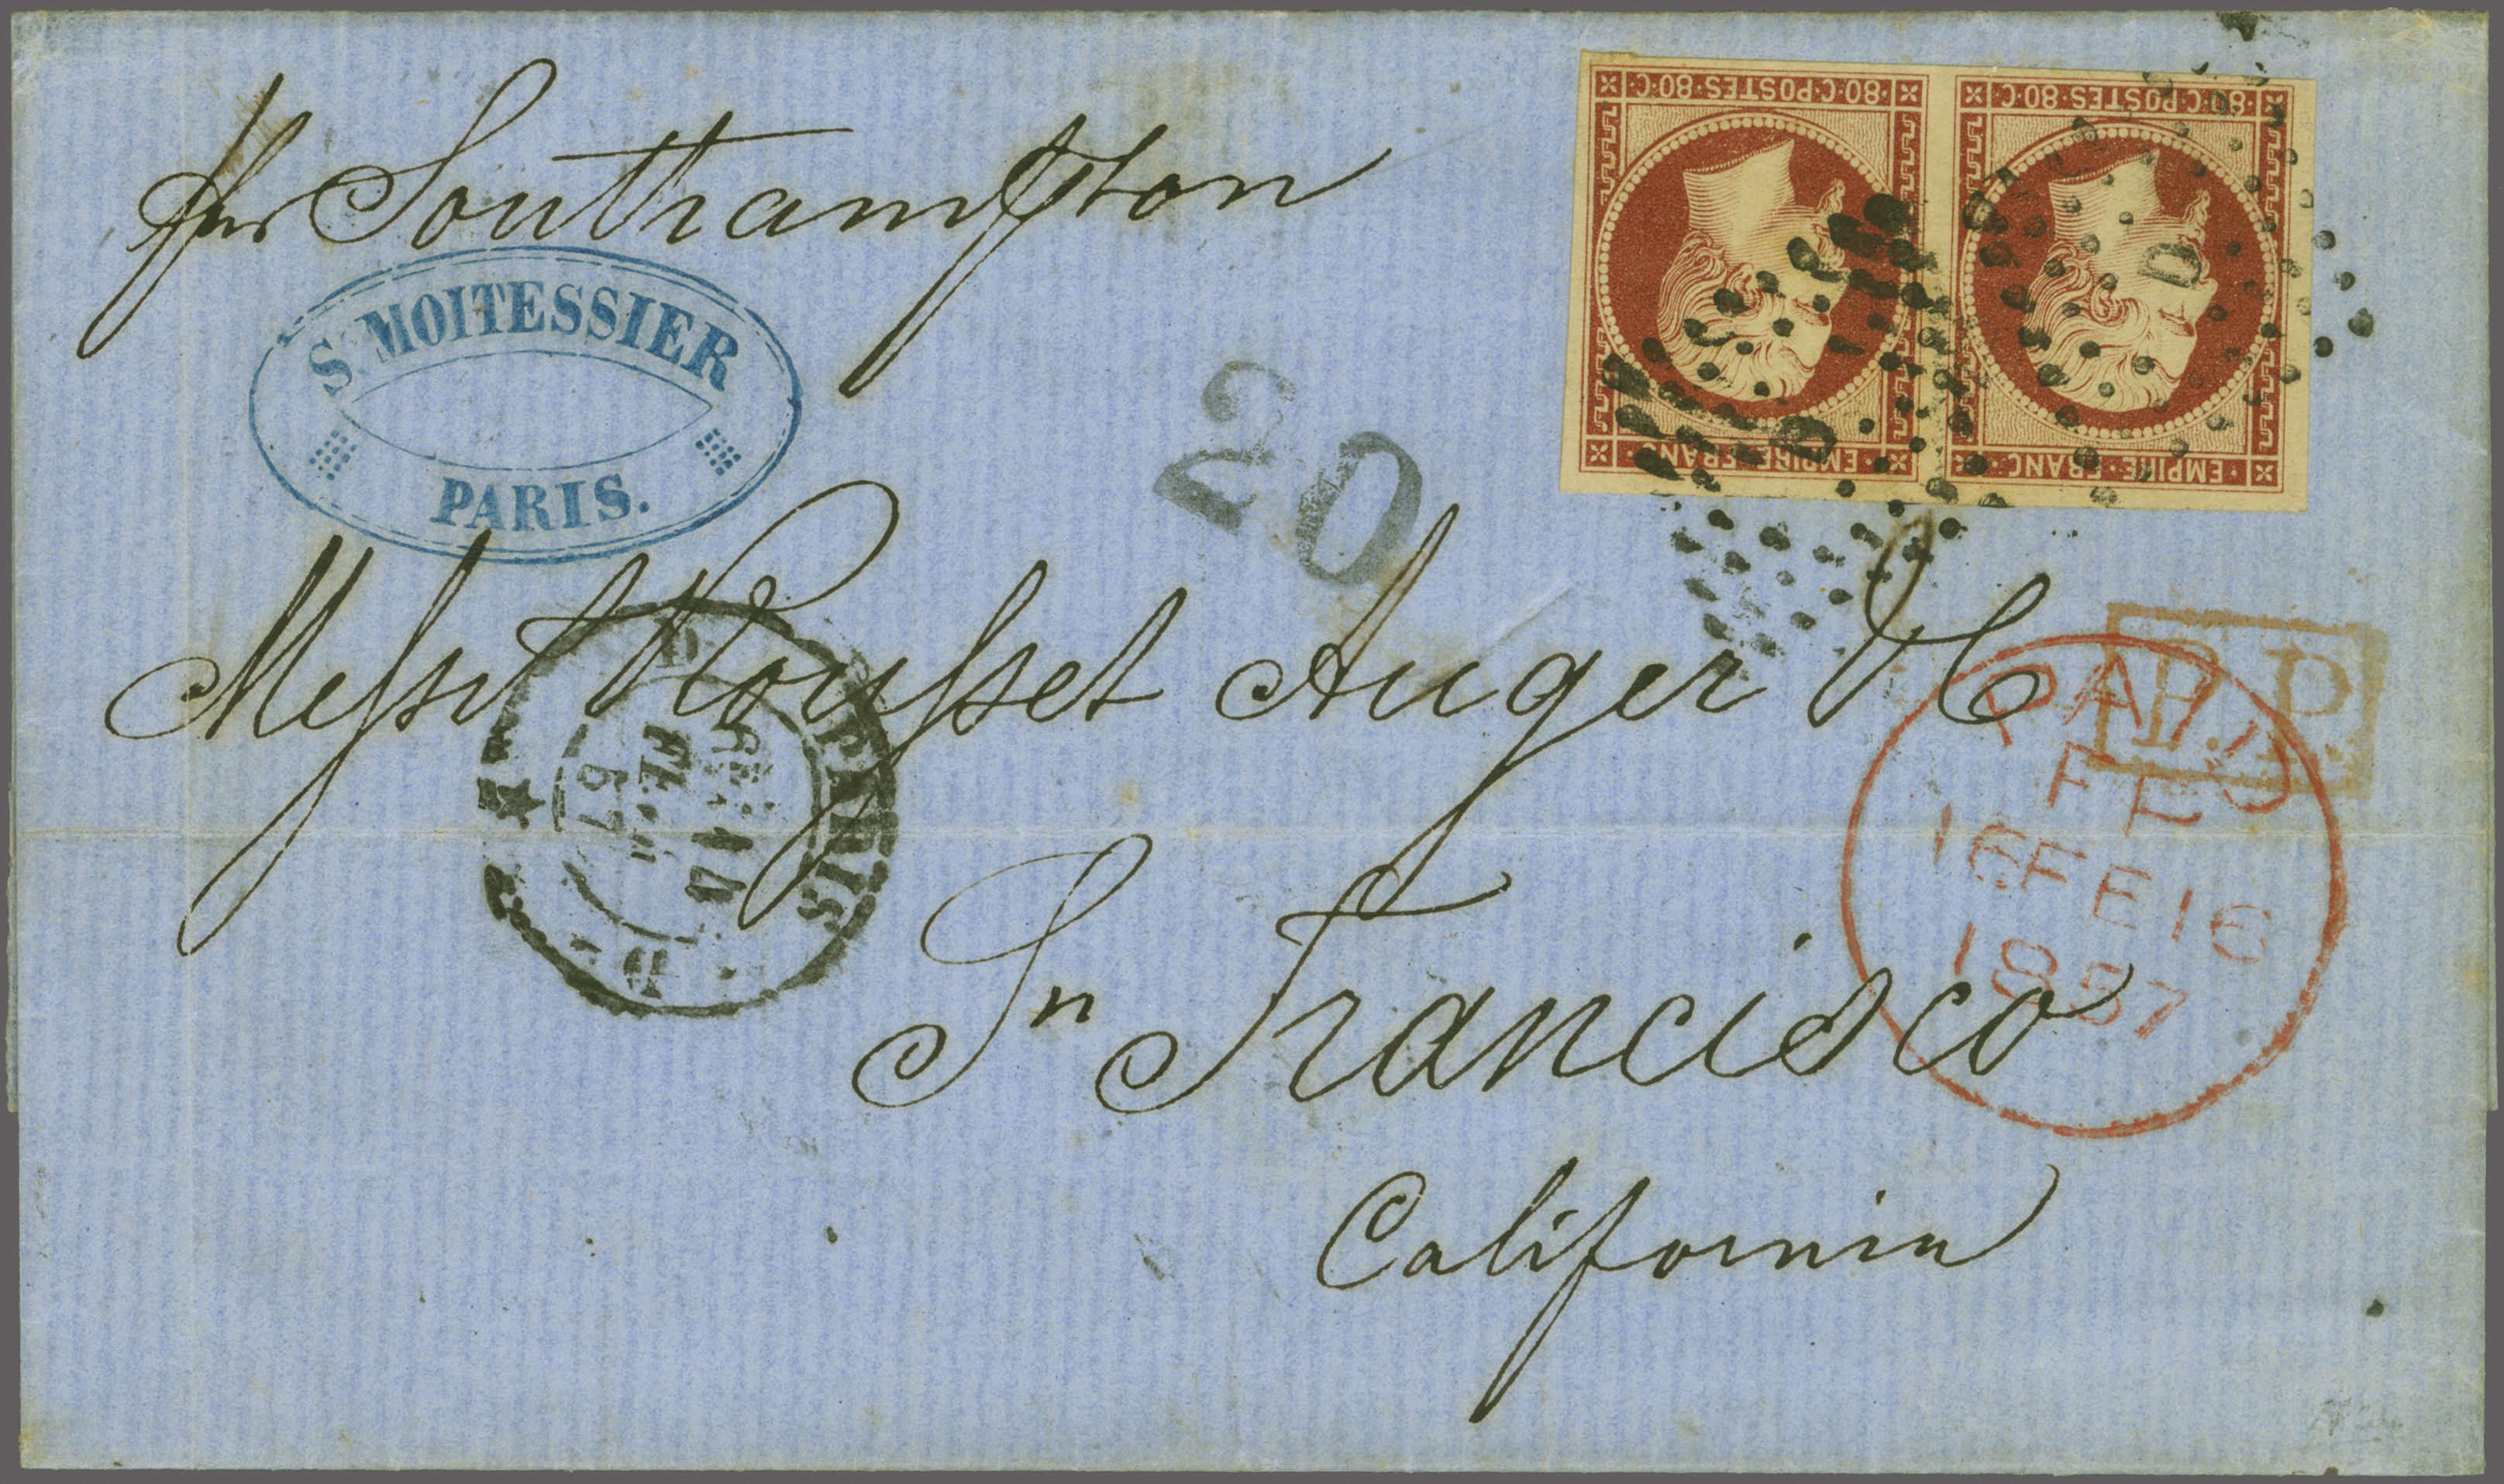 par Southampton
80·C·POSTES·80·C·
80·C·POSTES·80·C·
EMPIRE·FRANC·
EMPIRE·FRANC·
D
D
S. MOITESSIER
PARIS.
20
P.P.
Mess Rousset Auger & C
D
PARIS
14
57
D
PAID
FE
16 FE 16
1857
Sn Francisco
California